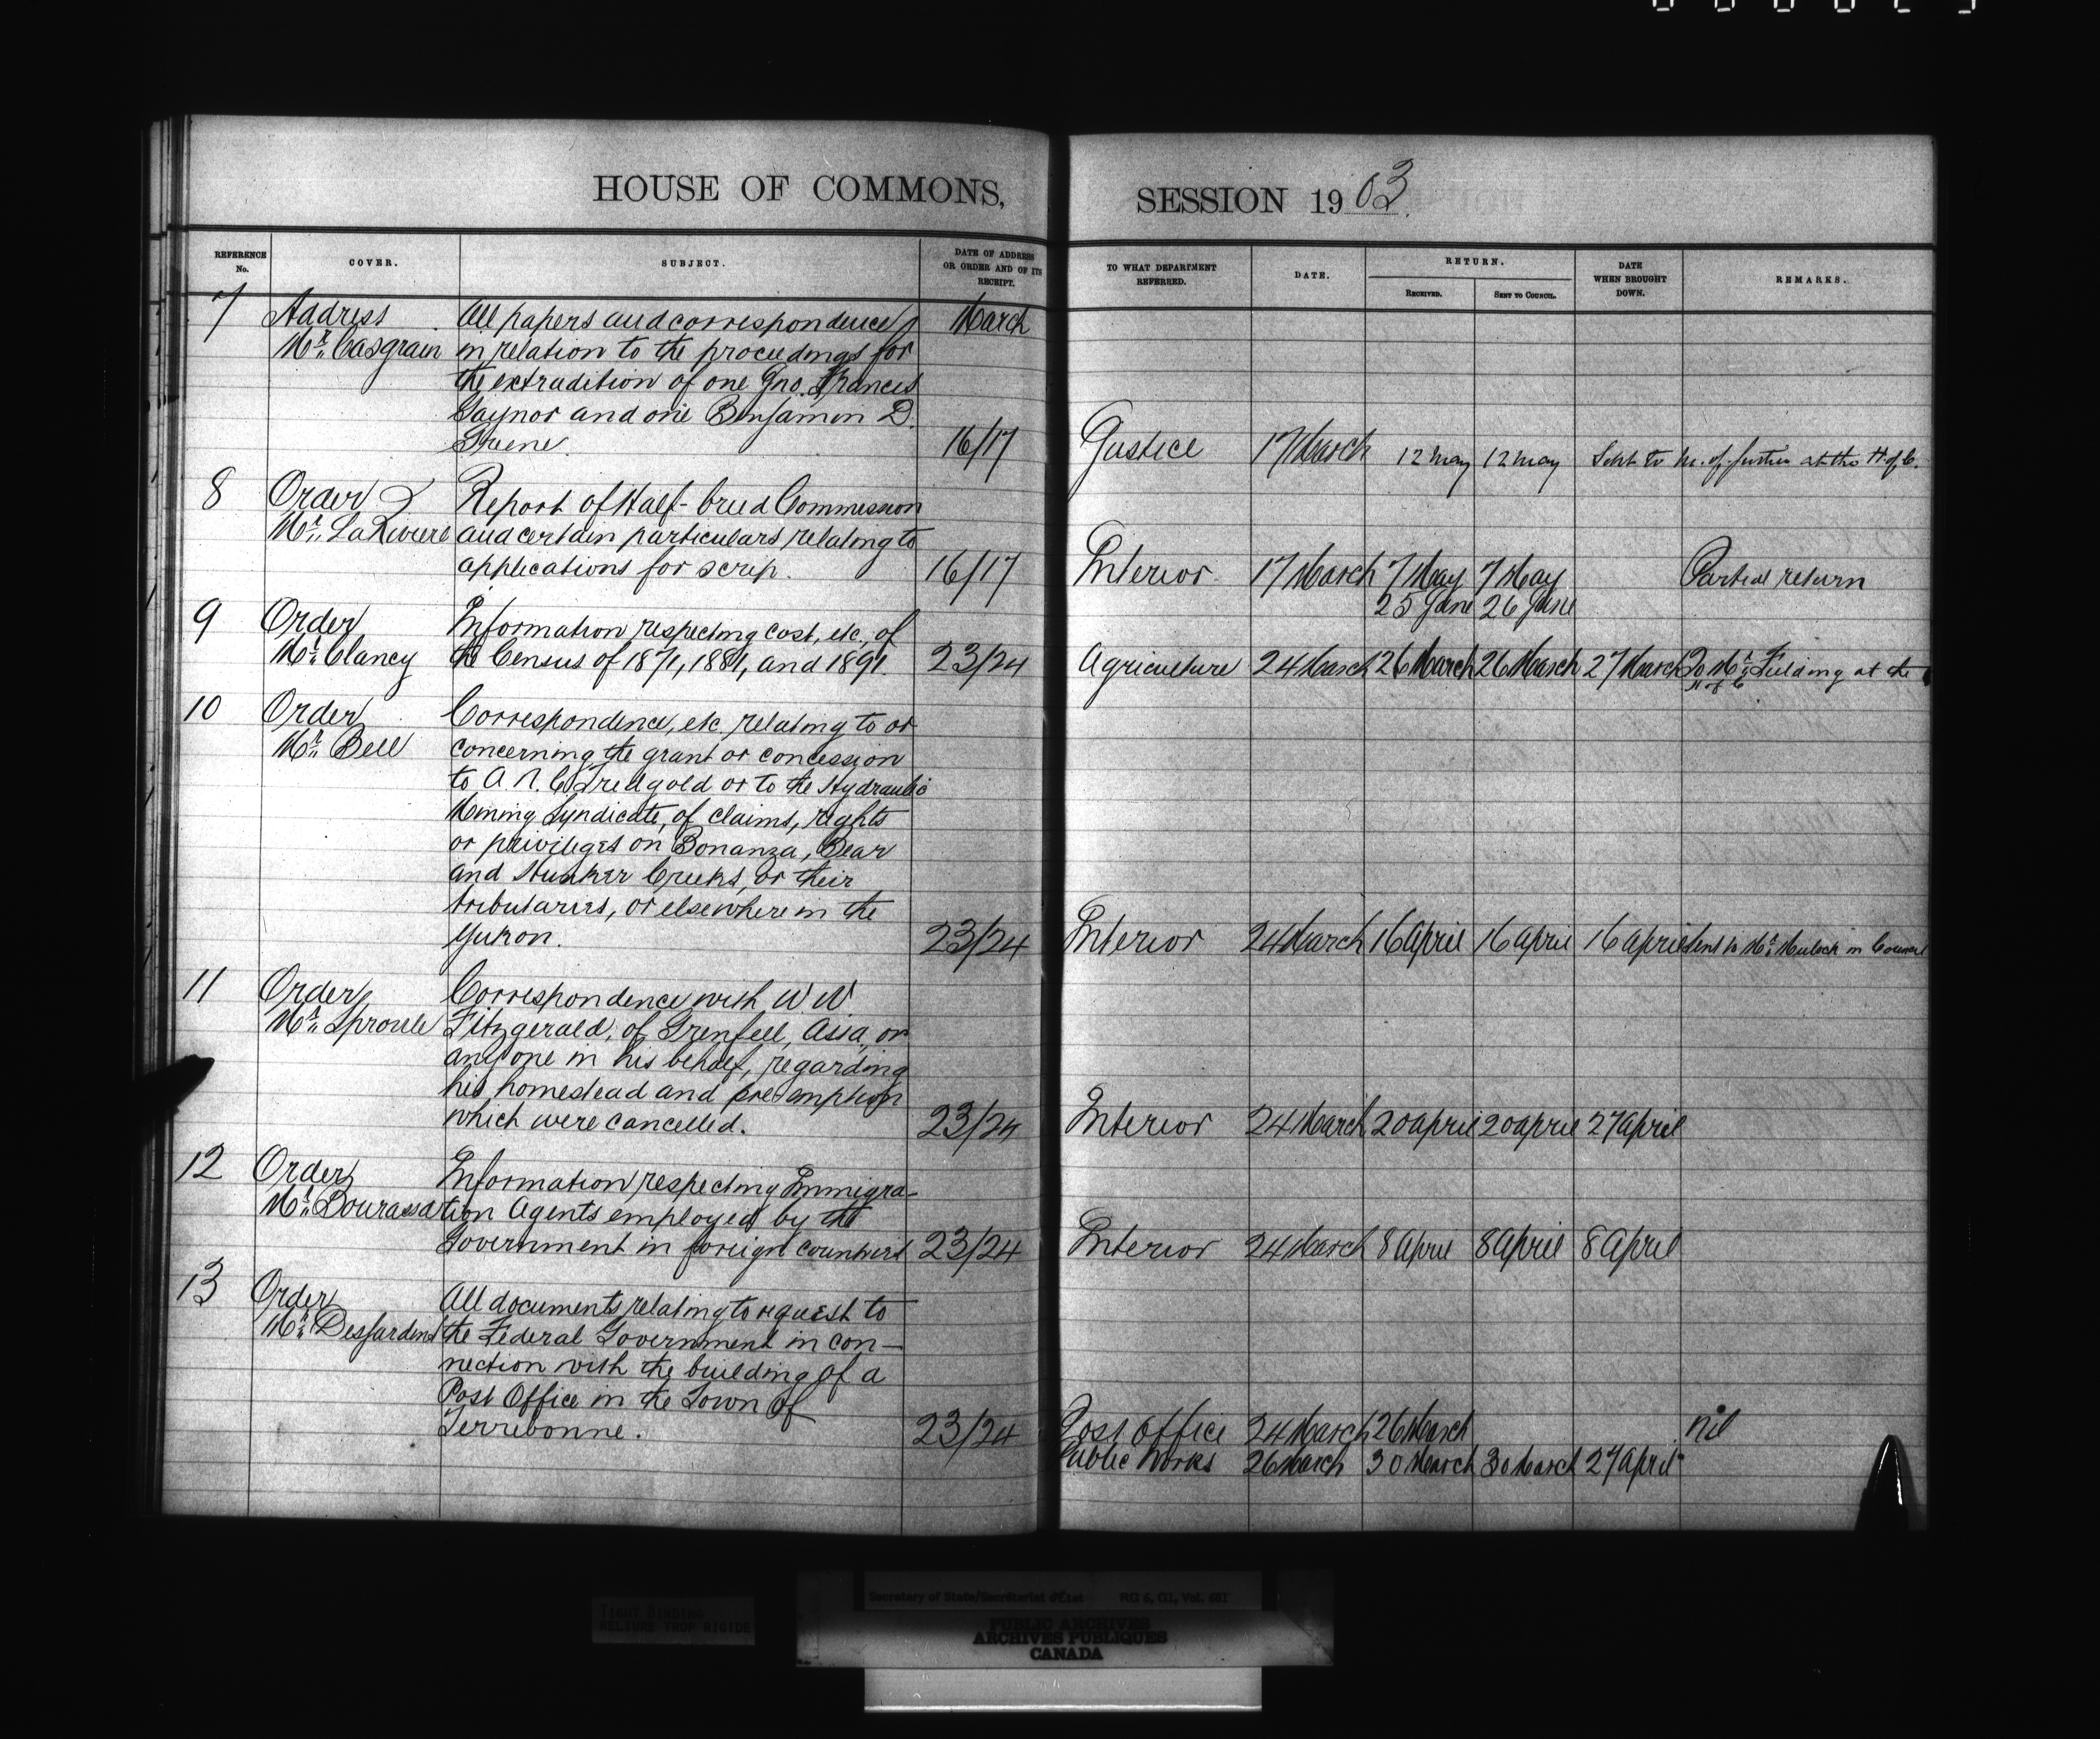 HOUSE OF COMMONS,
SESSION 1903.
REFERENCE No.
COVER.
SUBJECT.
DATE OF ADDRESS OR ORDER AND OF ITS RECEIPT.
TO WHAT DEPARTMENT REFERRED.
DATE.
RETURN.
RECEIVED.
SENT TO COUNCIL.
DATE WHEN BROUGHT DOWN.
REMARKS.
7 Address All papers and correspondence March
Mr. Casgrain in relation to the proceedings for
the extradition of one Jno. Francis
Gaynor and one Benjamin D.
Greene. 16/17 Justice 17 March 12 May 12 May Sent to M. of Justice at the H. of C.
8 Order Report of Half-breed Commission
Mr. LaRiviere and certain particulars relating to
applications for scrip. 16/17 Interior 17 March 7 May 7 May Partial return
25 June 26 June
9 Order Information respecting cost, etc., of
Mr. Clancy the Census of 1871, 1881, and 1891. 23/24 Agriculture 24 March 26 March 26 March 27 March To Mr. Fielding at the
H of C
10 Order Correspondence, etc. relating to or
Mr. Bell concerning the grant or concession
to A. N. C. Treadgold or to the Hydraulic
Mining Syndicate, of claims, rights
or privileges on Bonanza, Bear
and Hunker Creeks, or their
tributaries, or elsewhere in the
Yukon. 23/24 Interior 24 March 16 April 16 April 16 April Sent to Mr. Mulock in Council
11 Order Correspondence with W W
Mr. Sproule Fitzgerald, of Grenfell, Assa, or
any one in his behalf, regarding
his homestead and pre-emption
which were cancelled. 23/24 Interior 24 March 20 April 20 April 27 April
12 Order Information respecting Immigra-
Mr. Bourassa tion Agents employed by the
Government in foreign countries 23/24 Interior 24 March 8 April 8 April 8 April
13 Order All documents relating to request to
Mr. Desjardins the Federal Government in con-
nection with the building of a
Post Office in the Town of
Terrebonne. 23/24 Post Office 24 March 26 March nil
Public Works 26 March 30 March 30 March 27 April
TIGHT BINDING
RELIURE TROP RIGIDE
Secretary of State/Secrétariat d'État RG 6, G1, Vol. 681
PUBLIC ARCHIVES
ARCHIVES PUBLIQUES
CANADA